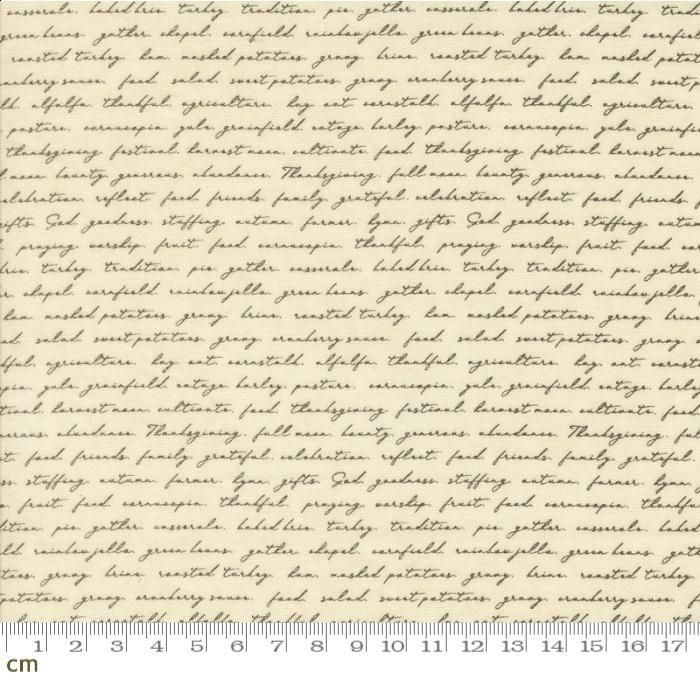 casserole. baked brie. turkey. tradition. pie. gather. casserole. baked brie. turkey.
green beans. gather. chapel. cornfield. rainbow jello. green beans. gather. chapel. cornfield
roasted turkey. ham. mashed potatoes. gravy. brine. roasted turkey. ham. mashed
cranberry sauce. food. salad. sweet potatoes. gravy. cranberry sauce. food. salad.
alfalfa. thankful. agriculture. hay. oat. cornstalk. alfalfa. thankful. agriculture.
pasture. cornucopia. yule. grainfield. cotage. barley. pasture. cornucopia. yule.
thanksgiving. festival. harvest moon. cultivate. food. thanksgiving. festival. harvest moon
moon. bounty. generous. abundance. Thanksgiving. full moon. bounty. generous. abundance.
celebration. reflect. food. friends. family. grateful. celebration. reflect. food. friends.
gifts. God. goodness. stuffing. autumn. farmer. hymn. gifts. God. goodness. stuffing.
praying. worship. fruit. food. cornucopia. thankful. praying. worship. fruit. food.
brie. turkey. tradition. pie. gather. casserole. baked brie. turkey. tradition. pie. gather
chapel. cornfield. rainbow jello. green beans. gather. chapel. cornfield. rainbow jello.
ham. mashed potatoes. gravy. brine. roasted turkey. ham. mashed potatoes. gravy. brine
salad. sweet potatoes. gravy. cranberry sauce. food. salad. sweet potatoes. gravy.
agriculture. hay. oat. cornstalk. alfalfa. thankful. agriculture. hay. oat.
yule. grainfield. cotage. barley. pasture. cornucopia. yule. grainfield. cotage.
harvest moon. cultivate. food. thanksgiving. festival. harvest moon. cultivate. food
abundance. Thanksgiving. full moon. bounty. generous. abundance. Thanksgiving.
food. friends. family. grateful. celebration. reflect. food. friends. family. grateful.
stuffing. autumn. farmer. hymn. gifts. God. goodness. stuffing. autumn. farmer. hymn
fruit. food. cornucopia. thankful. praying. worship. fruit. food. cornucopia.
pie. gather. casserole. baked brie. turkey. tradition. pie. gather. casserole. baked
rainbow jello. green beans. gather. chapel. cornfield. rainbow jello. green beans.
gravy. brine. roasted turkey. ham. mashed potatoes. gravy. brine. roasted turkey.
potatoes. gravy. cranberry sauce. food. salad. sweet potatoes. gravy. cranberry sauce.
1 2 3 4 5 6 7 8 9 10 11 12 13 14 15 16 17
cm